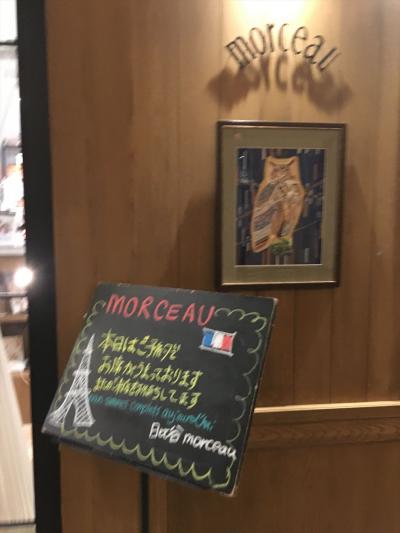 morceau
MORCEAU
本日はご予約で
お席がうまっております
またのお越しをお待ちしてます
nous sommes complets aujourd'hui
日比谷 morceau